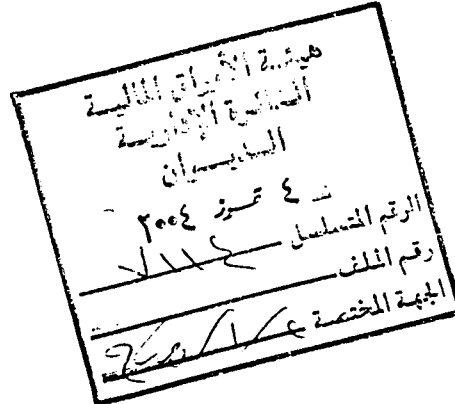 هيئة الأوراق المالية
الدائرة الإدارية
الديوان
٤ تموز ٢٠٠٤
الرقم المتسلسل ٧١١٤
رقم الملف
الجهة المختصة